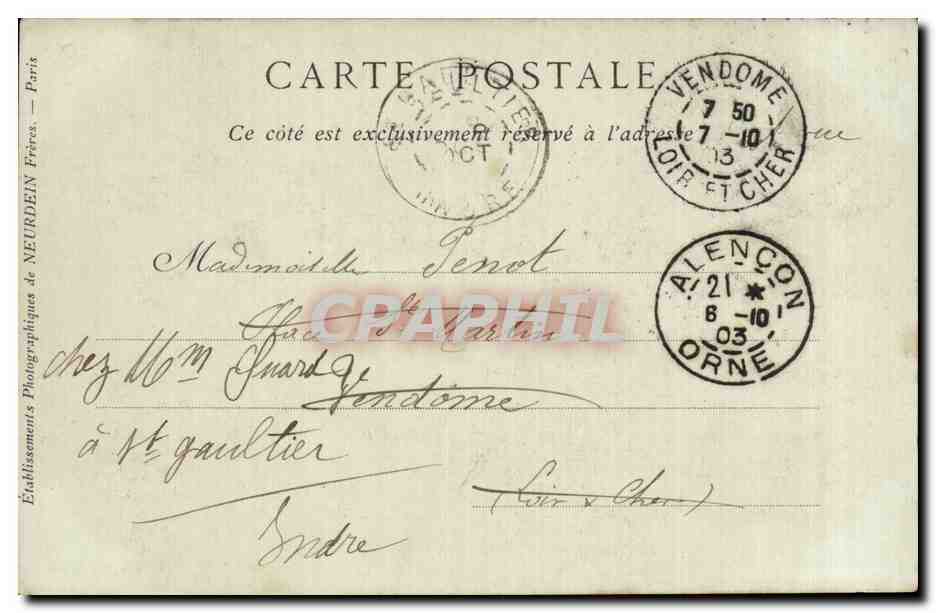 CARTE POSTALE
Ce côté est exclusivement réservé à l'adresse
Etablissements Photographiques de NEURDEIN Frères. — Paris
VENDOME
7 50
7 -10
03
LOIR ET CHER
OCT
ALENÇON
21 *
6 -10
03
ORNE
Mademoiselle Penot
Place St Martin
chez Mm
Vendôme
à St gaultier
(Loir & Cher)
Indre
CPAPHIL